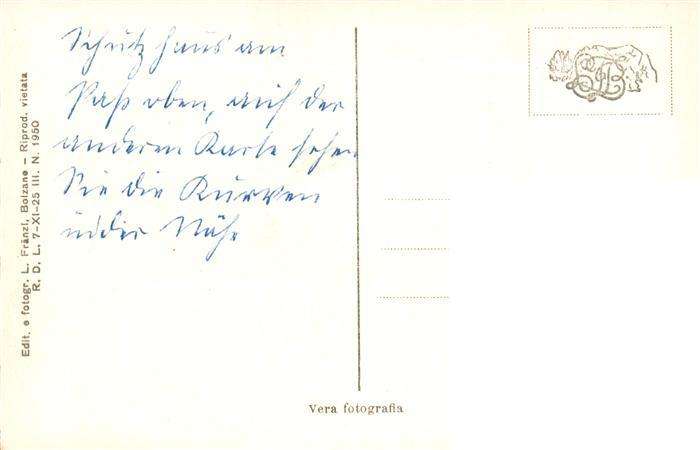 Schutzhaus am
Paß oben, auf der
anderen Karte sehen
Sie die Kurven
in der Nähe
Edit. e fotogr. L. Fränzl, Bolzano – Riprod. vietata
R. D. L. 7-XI-25 III. N. 1950
Vera fotografia